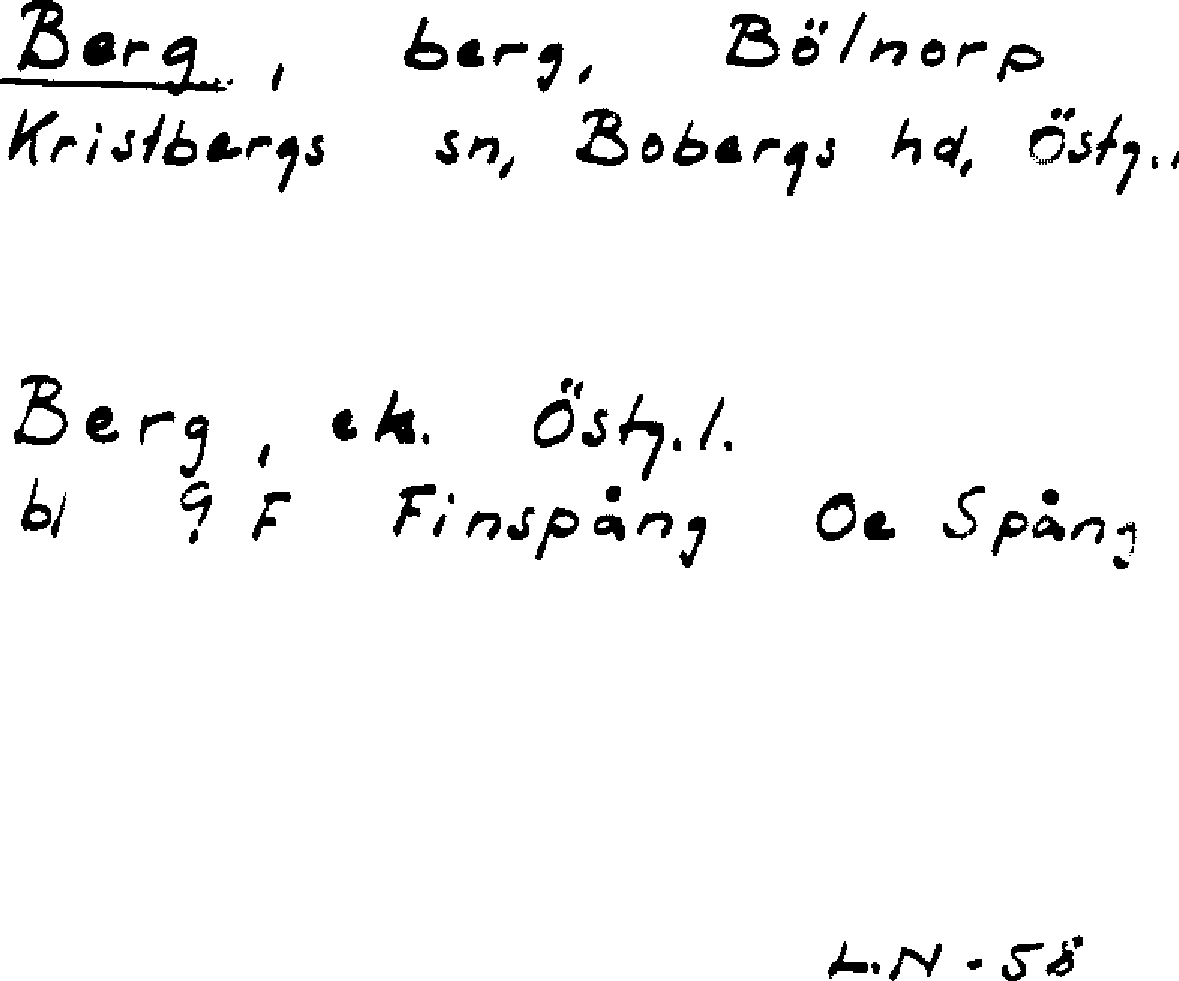 Berg, berg, Bölnorp
Kristbergs sn, Bobergs hd, Östg..
Berg, ek. Östg.l.
bl 9 F Finspång Oe Spång
L.N - 58